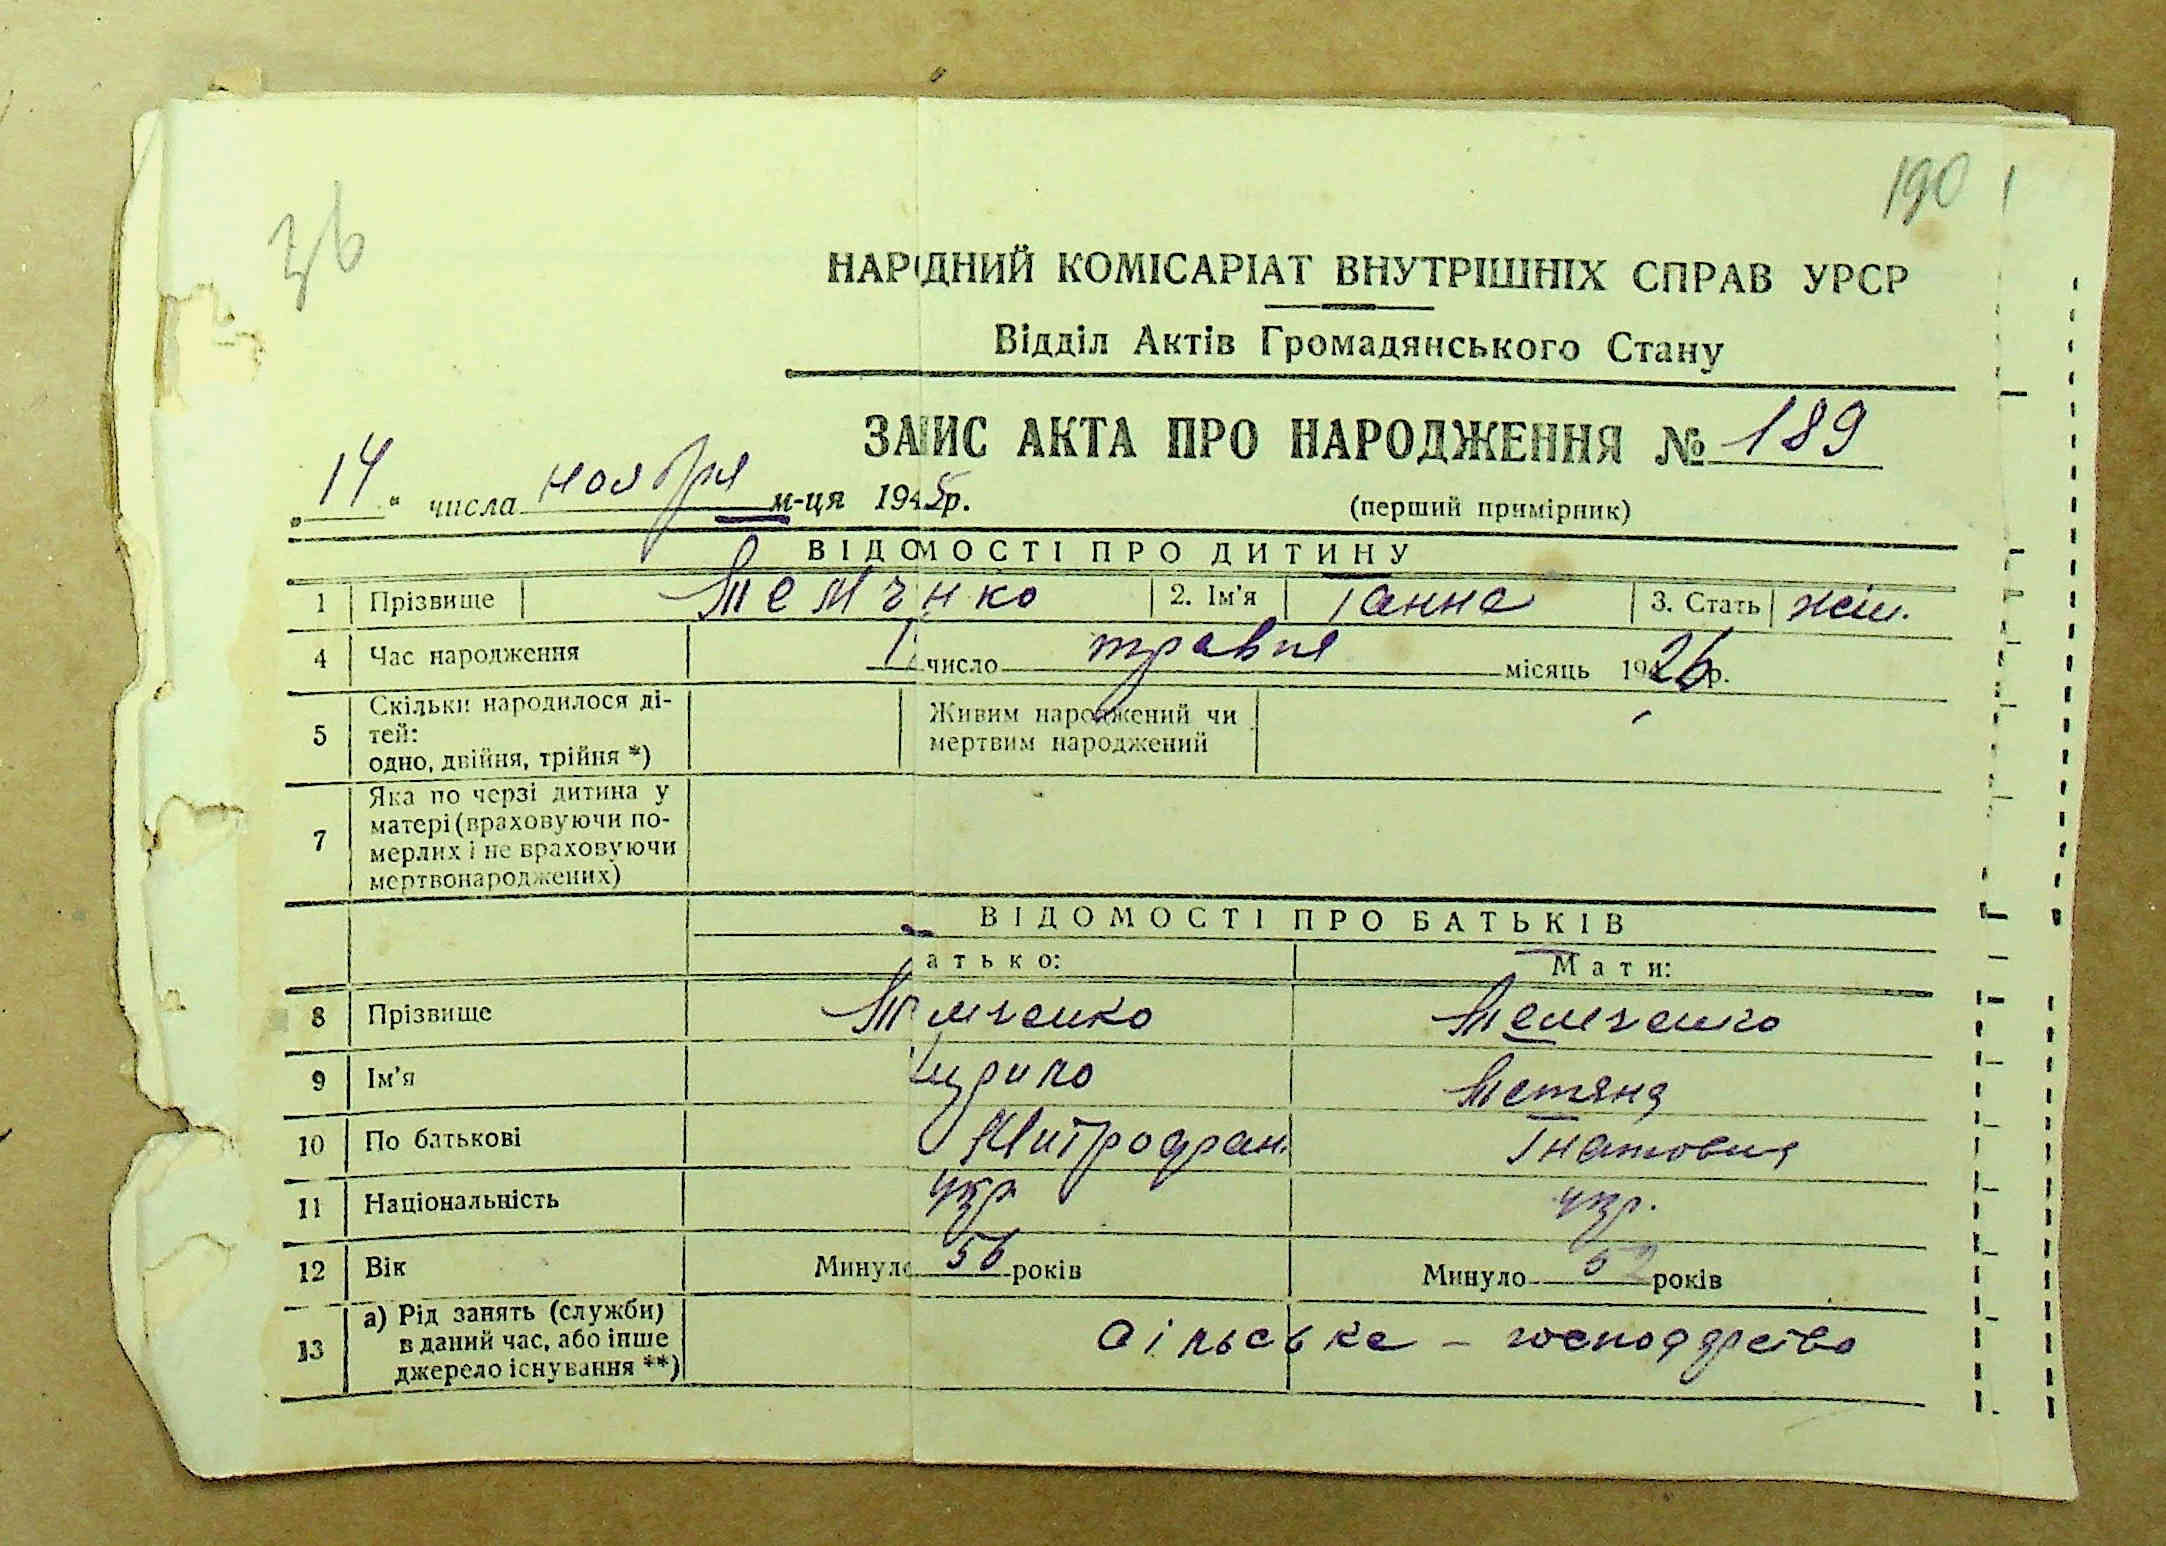 36
190
НАРОДНИЙ КОМІСАРІАТ ВНУТРІШНІХ СПРАВ УРСР
Відділ Актів Громадянського Стану
ЗАПИС АКТА ПРО НАРОДЖЕННЯ № 189
„14“ числа ноября м-ця 1945р.
(перший примірник)
ВІДОМОСТІ ПРО ДИТИНУ
1 Прізвище Темченко 2. Ім'я Ганна 3. Стать жін.
4 Час народження 1 число травня місяць 1926 р.
5 Скільки народилося ді-
тей:
одно, двійня, трійня *)
Живим народжений чи
мертвим народжений
7 Яка по черзі дитина у
матері (враховуючи по-
мерлих і не враховуючи
мертвонароджених)
ВІДОМОСТІ ПРО БАТЬКІВ
атько: Мати:
8 Прізвище Темченко Темченко
9 Ім'я Кирило Тетяна
10 По батькові Митрофан. Гнатовна
11 Національність укр укр.
12 Вік Минуло 56 років Минуло 52 років
13 а) Рід занять (служби)
в даний час, або інше
джерело існування **)
сільське - господарство